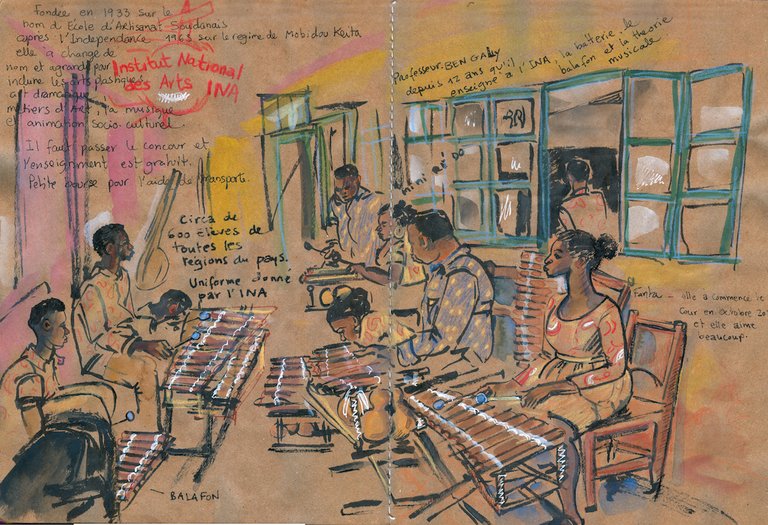 Fondée en 1933 sur le
nom d'École d'Artisanat Soudanais
après l'Indépendance 1963 sur le regime de Mobidou Keita
elle a changé de
nom et agrandé par
inclure les arts plastiques
art dramatique
métiers d'Art, la musique
et animation socio culturel
Il faut passer le concour et
l'enseignment est gratuit.
Petite bourse pour l'aide de transports.
Institut National
des Arts INA
Circa de
600 élèves de
toutes les
régions du pays.
Uniforme donné
par l'INA
Professeur BEN GALLY
depuis 12 ans qu'il
enseigne a l'INA, la batterie, le
balafon et la théorie
musicale
Fanta - elle a commencé le
cour en Octobre
et elle aime
beaucoup.
BALAFON